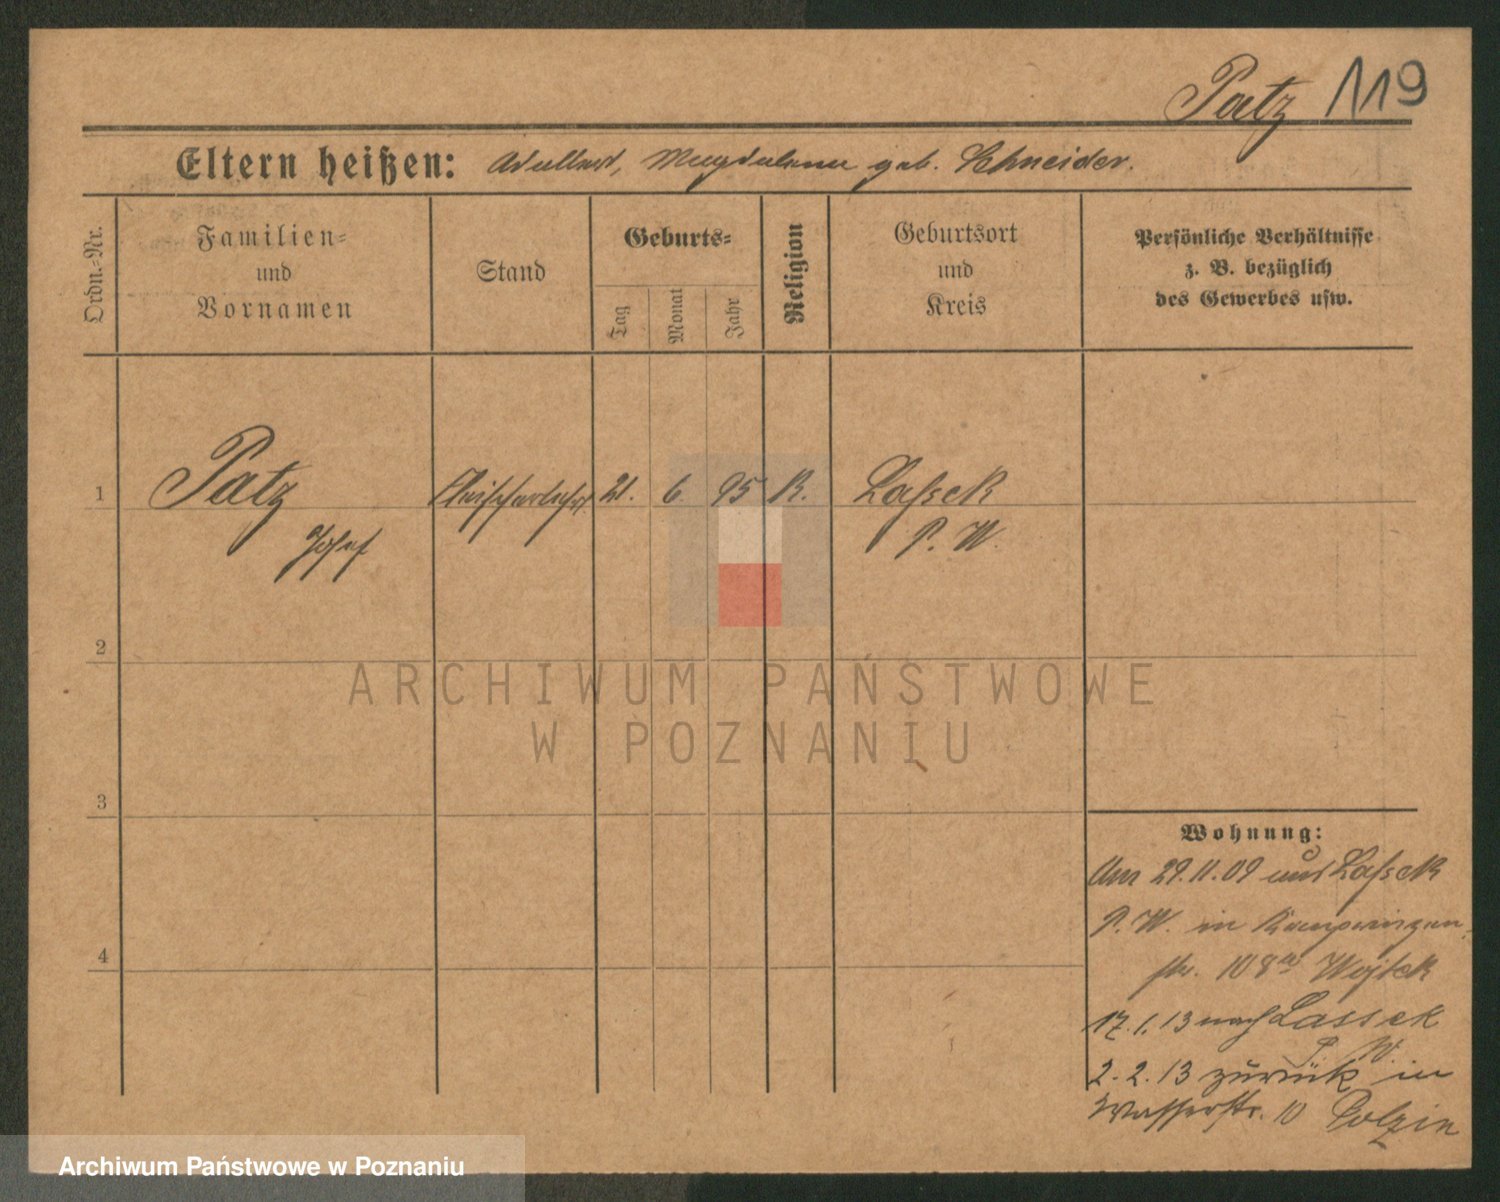 Patz 119
Eltern heißen: Adalbert, Magdalena geb. Schneider.
Ordn.-Nr.
Familien-
und
Vornamen
Stand
Geburts-
Tag
Monat
Jahr
Religion
Geburtsort
und
Kreis
Persönliche Verhältnisse
z. B. bezüglich
des Gewerbes usw.
1 Patz Fleischerlehrl. 21. 6. 95 K. Lassek
Josef P. W.
2
3
4
Wohnung:
Am 29.11.09 aus Lassek
P. W. in
str. 108a Wojtek
17.1.13 nach Lassek
P. W.
2.2.13 zurück in
Wasserstr. 10 Polzin
ARCHIWUM PAŃSTWOWE
W POZNANIU
Archiwum Państwowe w Poznaniu